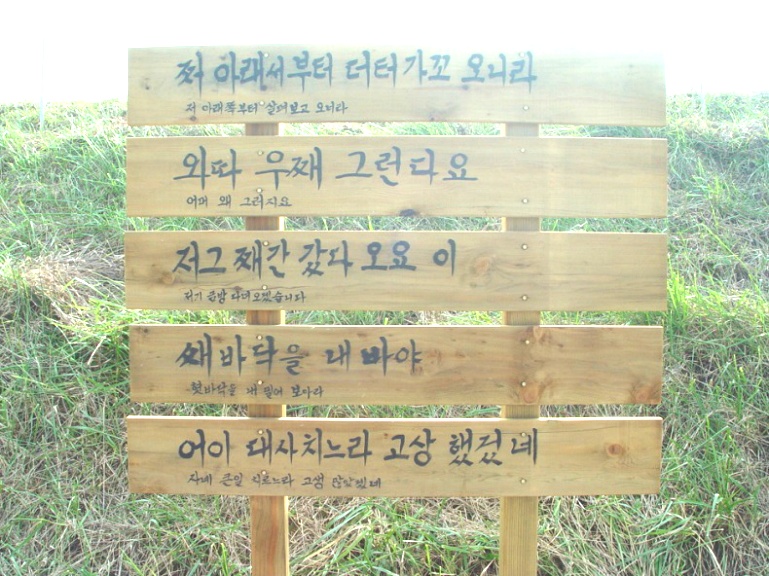 쩌 아래서부터 더터가꼬 오니라
저 아래쪽부터 살펴보고 오너라
와따 우째 그런다요
어머 왜 그러지요
저그 째간 갔다 오요 이
저기 금방 다녀오겠습니다
쌔바닥을 내 바야
혓바닥을 내 밀어 보아라
어이 대사치느라 고상 했겄네
자네 큰일 치르느라 고생 많았겠네